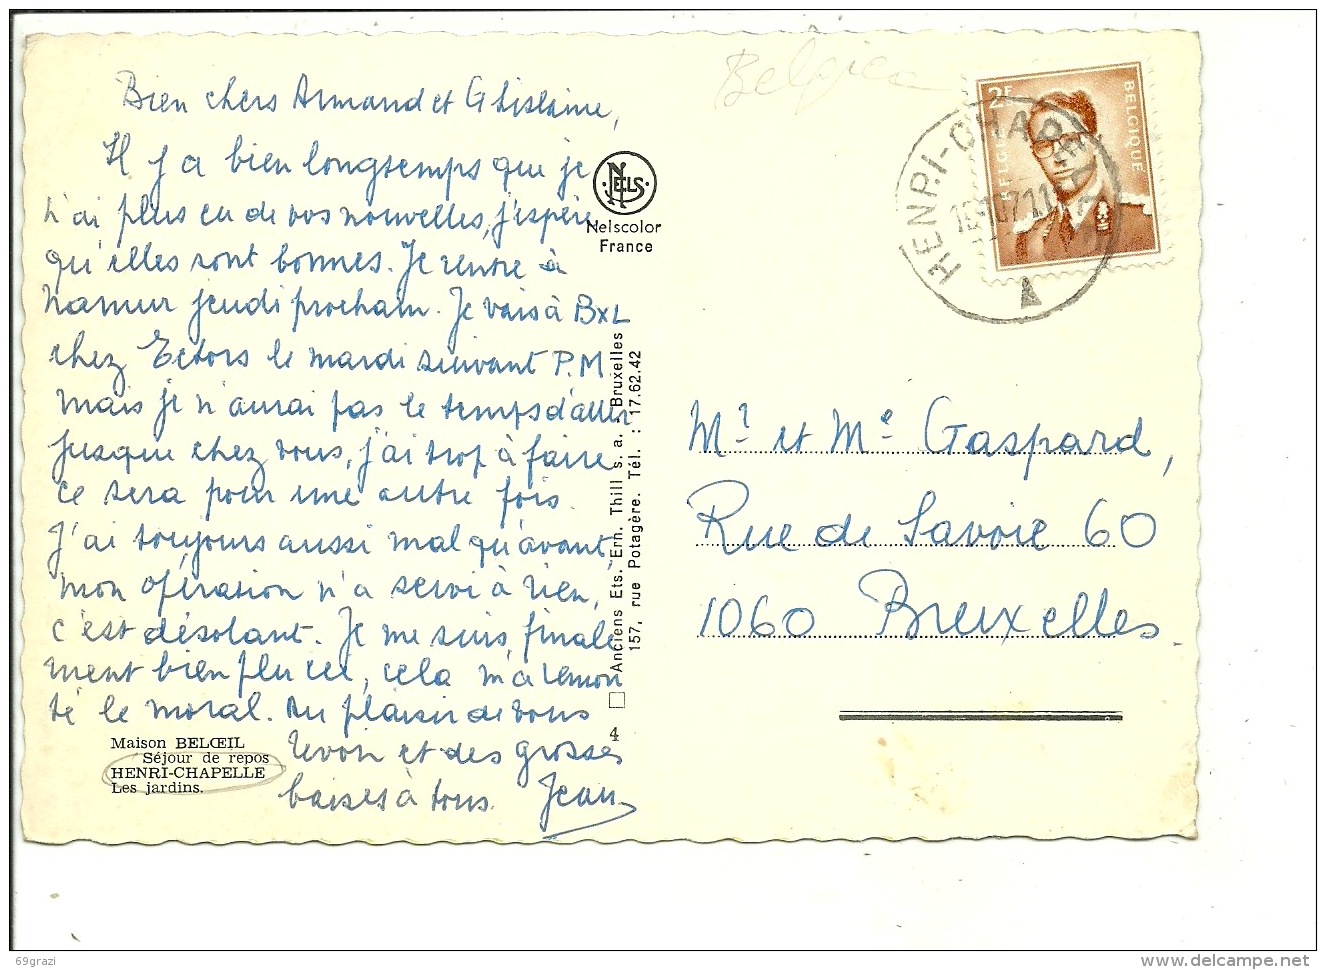 Belgica
Bien chers Armand et Ghislaine,
Il y a bien longtemps que je
n'ai plus eu de vos nouvelles, j'espère
qu'elles sont bonnes. Je rentre à
Namur jeudi prochain. Je vais à BxL
chez Ectors le mardi suivant P.M
mais je n'aurai pas le temps d'aller
jusque chez vous, j'ai trop à faire
ce sera pour une autre fois.
J'ai toujours aussi mal qu'avant,
mon opération n'a servi à rien,
c'est désolant. Je me suis finale
ment bien plu ici, cela m'a remon
té le moral. Au plaisir de vous
revoir et des grosses
baises à tous. Jean
Maison BELŒIL
Séjour de repos
HENRI-CHAPELLE
Les jardins.
NELS
Nelscolor
France
4 Anciens Ets. Ern. Thill s. a. Bruxelles
157, rue Potagère. Tél. : 17.62.42
2F
BELGIQUE
HENRI-CHAPELLE
Mr et Me Gaspard,
Rue de Savoie 60
1060 Bruxelles.
69grazi
www.delcampe.net